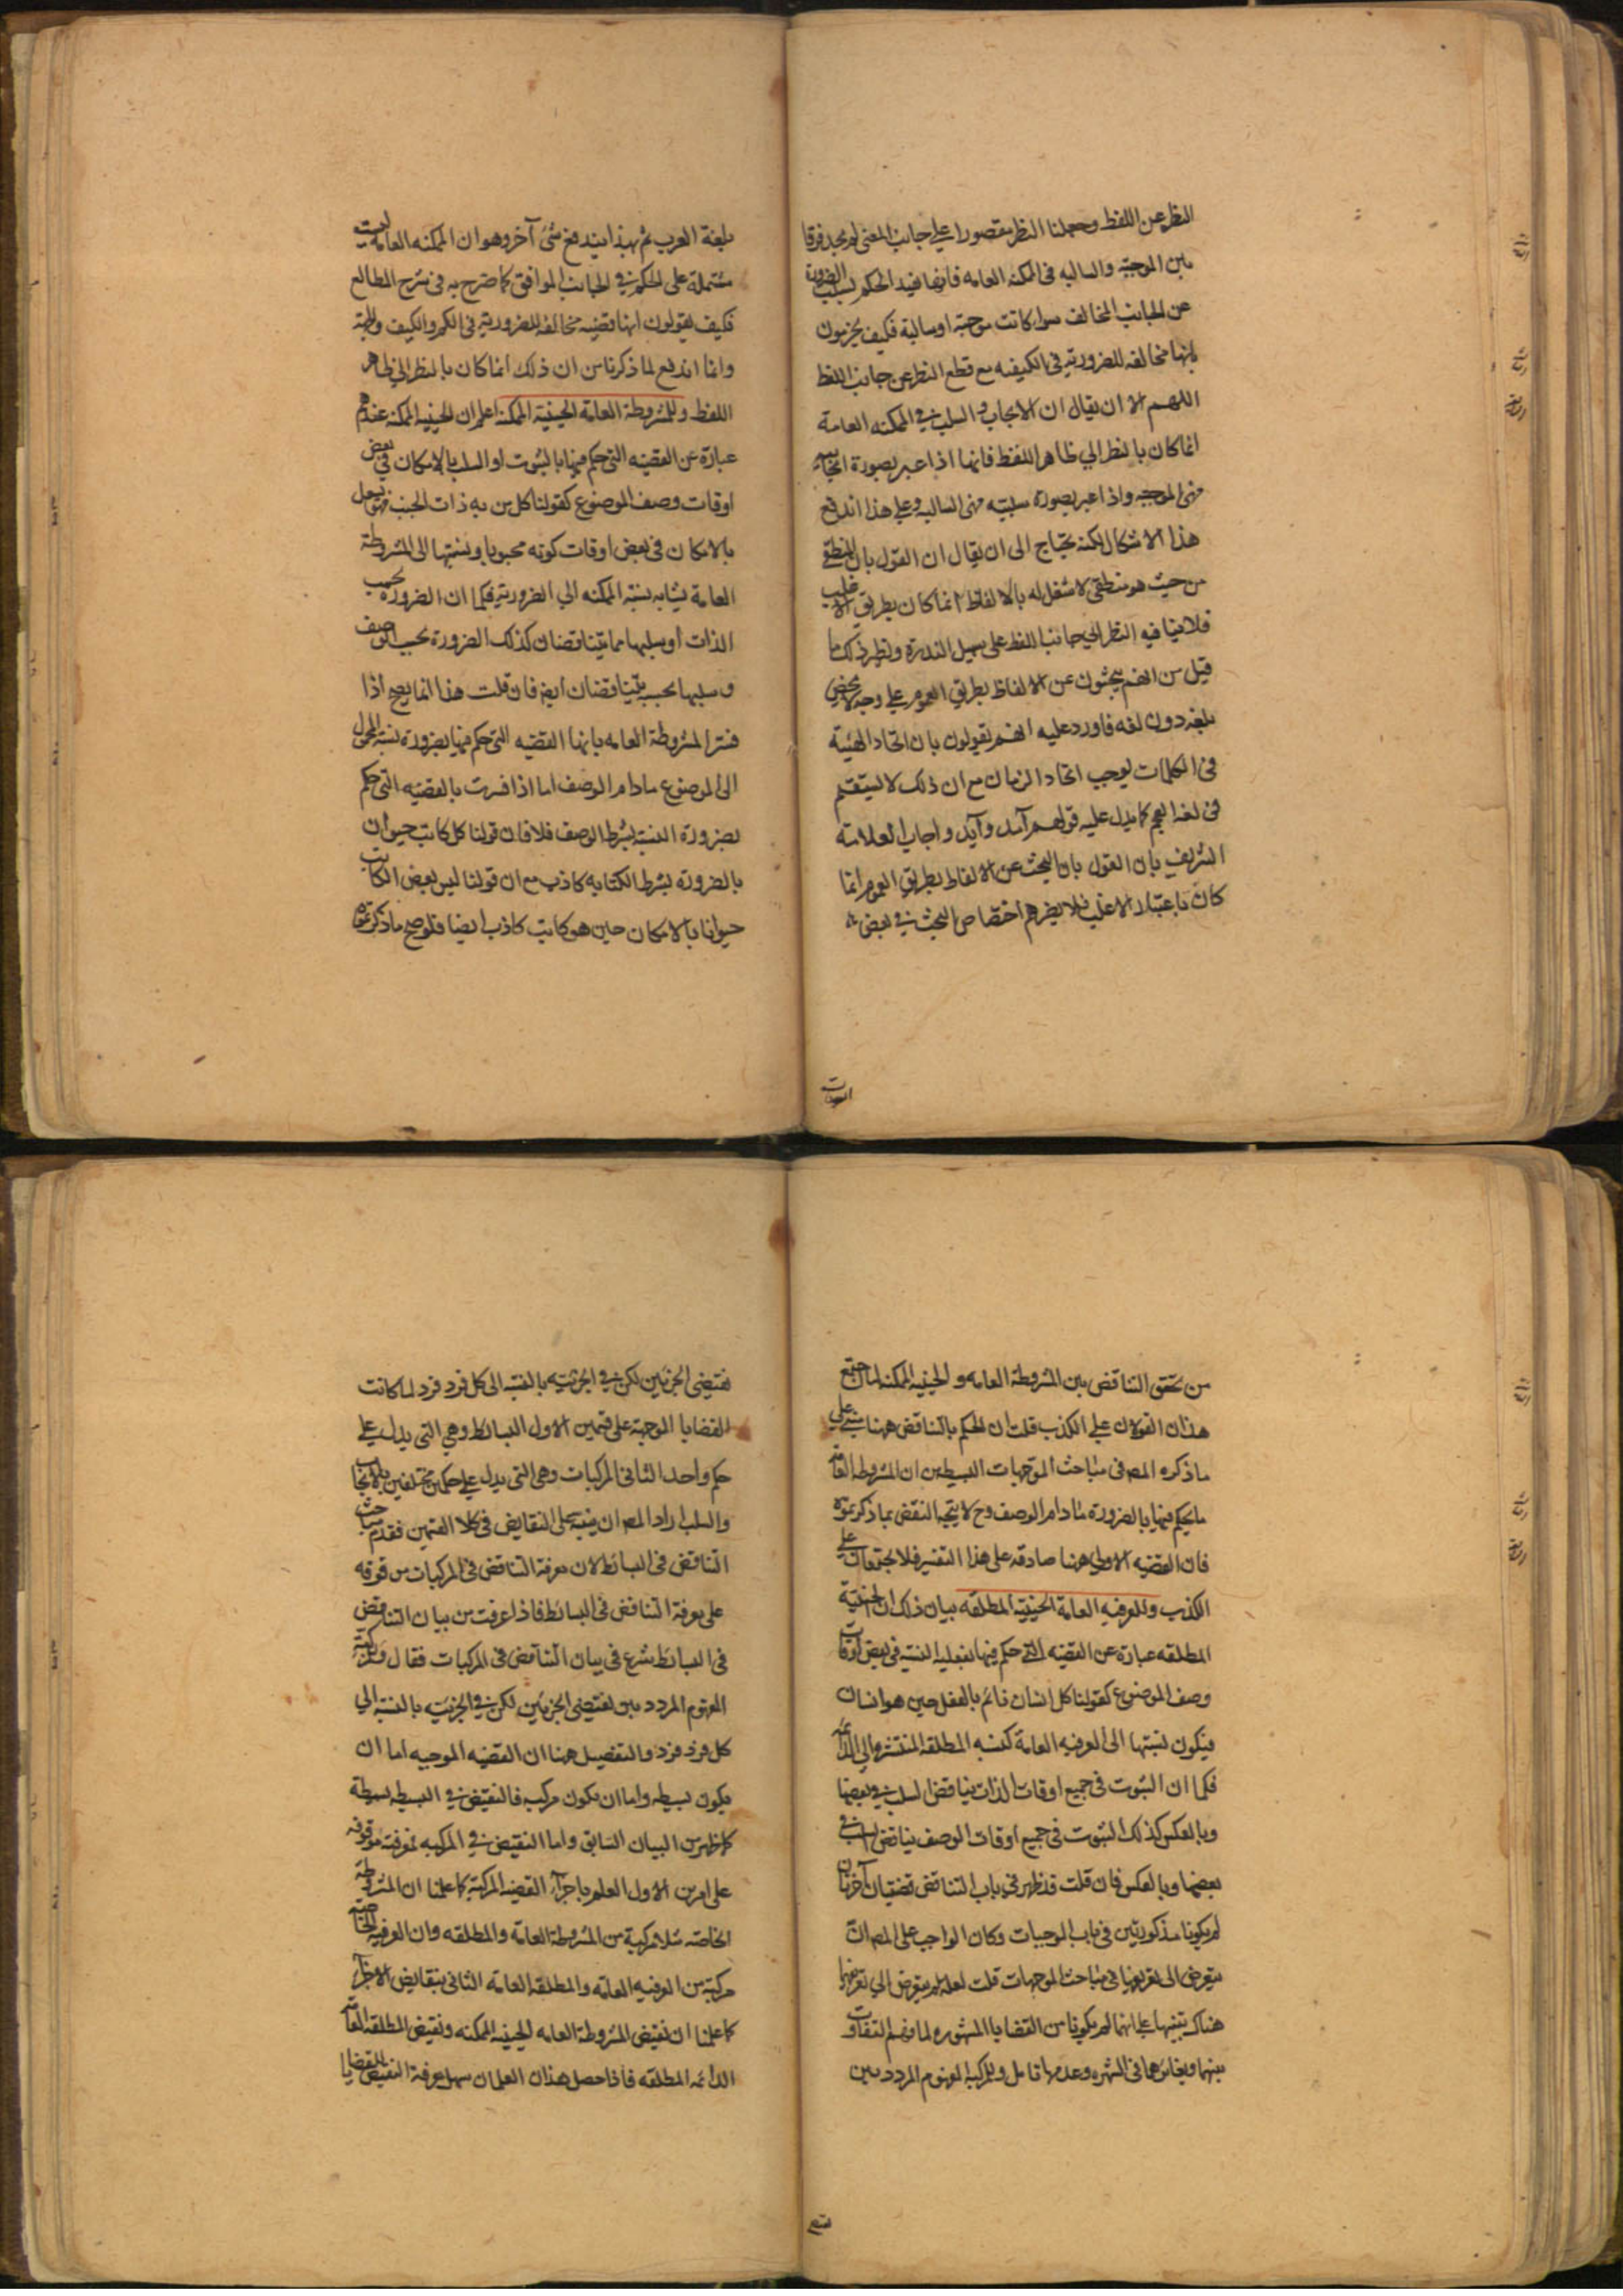 النظر عن اللفظ وجعلنا النظر مقصورا علي جانب المعني لم نجد فرقا
بين الموجبة والسالبه فى الممكنه العامه فانها تفيد الحكم بسلب الضرورة
عن الجانب المخالف سواء كانت موجبة او سالبة فكيف يجزمون
بانها مخالفه للضرورية فى الكيفيه مع قطع النظر عن جانب اللفظ
اللهم الا ان يقال ان الايجاب والسلب في الممكنه العامة
انما كان بالنظر الي ظاهر اللفظ فانها اذا عبر بصورة ايجابية
فهى الموجبه واذا عبر بصورة سلبيه فهى السالبه وعلي هذا اندفع
هذا الاشكال لكنه يحتاج الى ان يقال ان القول بان المنطقي
من حيث هو منطقى لا شغل له بالالفاظ انما كان بطريق الاغلب
فلا ينافيه النظر الي جانب اللفظ على سبيل الندرة ونظير ذلك ما
قيل من انهم يبحثون عن الالفاظ بطريق العموم علي وجه لا يختص
بلغه دون لغه فاورد عليه انهم يقولون بان اتحاد الهيئة
فى الكلمات يوجب اتحاد الزمان مع ان ذلك لا يستقيم
فى لغة العجم كما يدل عليه قولهم آمد وآيد واجاب العلامة
الشريف بان القول بان البحث عن الالفاظ بطريق العموم انما
كان باعتبار الاغلب فلا يضرهم اختصاص البحث في بعض
بلغة العرب ثم بهذا يندفع شئ آخر وهو ان الممكنه العامة ليست
مشتملة على الحكم في الجانب الموافق كما صرح به فى شرح المطالع
فكيف يقولون انها قضيه مخالفه للضرورية فى الكم والكيف والجهة
وانما اندفع لما ذكرنا من ان ذلك انما كان بالنظر الي ظاهر
اللفظ وللمشروطة العامة الحينية الممكنة اعلم ان الحينيه الممكنه عندهم
عبارة عن القضيه التى حكم فيها بالثبوت او السلب بالامكان في بعض
اوقات وصف الموضوع كقولنا كل من به ذات الجنب فهو يسعل
بالامكان فى بعض اوقات كونه مجنوبا ونسبتها الى المشروطة
العامة يشابه نسبة الممكنه الي الضرورية فكما ان الضرورة بحسب
الذات او سلبها مما يتناقضان كذلك الضرورة بحسب الوصف
وسلبها بحسبه يتناقضان ايضا فان قلت هذا انما يصح اذا
فسر المشروطة العامه بانها القضيه التى حكم فيها بضرورة نسبة المحمول
الى الموضوع مادام الوصف اما اذا فسرت بالقضيه التى حكم
بضرورة النسبة بشرط الوصف فلا فان قولنا كل كاتب حيوان
بالضرورة بشرط الكتابه كاذب مع ان قولنا ليس بعض الكاتب
حيوانا بالامكان حين هو كاتب كاذب ايضا فلو صح ما ذكرتموه
من تحقق التناقض بين المشروطة العامه والحينيه الممكنه لما اجتمع
هذان القولان علي الكذب قلت ان الحكم بالتناقض ههنا مبني على
ما ذكره المص فى مباحث الموجهات البسيطه من ان المشروطه العامة
ما يحكم فيها بالضرورة مادام الوصف وح لا يتجه النقض بما ذكرتموه
فان القضيه الاولي ههنا صادقه على هذا التفسير فلا يجتمعان علي
الكذب وللعرفيه العامة الحينية المطلقه بيان ذلك ان الحينية
المطلقه عبارة عن القضيه التى حكم فيها بفعليه النسبة فى بعض اوقات
وصف الموضوع كقولنا كل انسان نائم بالفعل حين هو انسان
فيكون نسبتها الى العرفيه العامة كنسبه المطلقه المنتشره الى الدائمة
فكما ان الثبوت فى جميع اوقات الذات يناقض السلب في بعضها
وبالعكس كذلك الثبوت فى جميع اوقات الوصف يناقض السلب في
بعضها وبالعكس فان قلت قد ظهر فى باب التناقض قضيتان آخرتان
لم يكونا مذكورتين فى باب الموجهات وكان الواجب على المص ان
يتعرض الى تعريفهما فى مباحث الموجهات قلت لعله لم يتعرض الى تعريفهما
هناك تنبيها على انهما لم يكونا من القضايا المشهوره لما وقع التفاوت
بينهما وبين غيرهما فى الشهره وعدمها تامل وللمركبه المفهوم المردد بين
نقيضى الجزئين لكن في الجزئيه بالنسبه الى كل فرد فرد لما كانت
القضايا الموجهة على قسمين الاول البسائط وهي التى يدل علي
حكم واحد الثانى المركبات وهى التى يدل على حكمين مختلفين بالايجاب
والسلب اراد المص ان ينبه على النقايض فى كلا القسمين فقدم مباحث
التناقض فى البسائط لان معرفة التناقض فى المركبات موقوفه
على معرفة التناقض فى البسائط فاذا عرفت من بيان التناقض
فى البسائط شرع فى بيان التناقض فى المركبات فقال وللمركبة
المفهوم المردد بين نقيضى الجزئين لكن في الجزئية بالنسبه الي
كل فرد فرد والتفصيل ههنا ان القضيه الموجهه اما ان
يكون بسيطه واما ان يكون مركبه فالنقيض في البسيطه بسيطة
كما ظهر من البيان السابق واما النقيض في المركبه فمعرفته موقوفه
على امرين الاول العلم باجزاء القضيه المركبة كما علمنا ان المشروطة
الخاصه مثلا مركبة من المشروطة العامة والمطلقه وان العرفيه الخاصة
مركبة من العرفيه العامة والمطلقه العامة الثانى بنقايض الاجزاء
كما علمنا ان نقيض المشروطة العامه الحينيه الممكنه ونقيض المطلقه العامة
الدائمه المطلقه فاذا حصل هذان العلمان سهل معرفة النقيض للقضايا